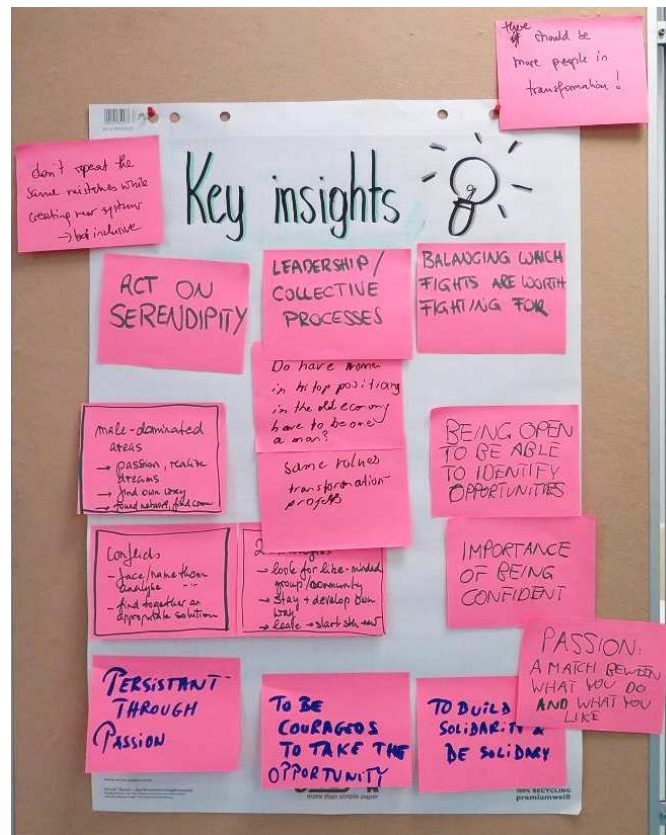 there
should be
more people in
transformation!
don't repeat the
same mistakes while
creating new systems
→ be inclusive
Key insights
ACT ON
SERENDIPITY
LEADERSHIP/
COLLECTIVE
PROCESSES
BALANCING WHICH
FIGHTS ARE WORTH
FIGHTING FOR
Do have women
in hi top positiong
in the old economy
have to become
a man?
same values
transformation
male-dominated
areas
→ passion, realize
dreams
→ find own way
→ found network, find
BEING OPEN
TO BE ABLE
TO IDENTIFY
OPPORTUNITIES
Conflicts
- face/name them
analyse
- find together an
appropriate solution
2
→ look for like-minded
group/community
→ stay + develop own
way
→ leave → start sth new
IMPORTANCE
OF BEING
CONFIDENT
PASSION:
A MATCH BEWEEN
WHAT YOU DO
AND WHAT YOU
LIKE
PERSISTANT
THROUGH
PASSION
TO BE
COURAGEOS
TO TAKE THE
OPPORTUNITY
TO BUILD
SOLIDARITY &
BE SOLIDARY
more than simple paper
100% RECYCLING
premiumweiß